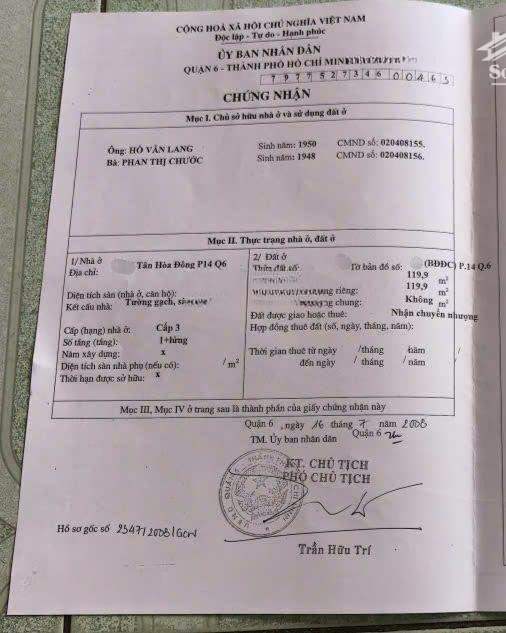 CỘNG HOÀ XÃ HỘI CHỦ NGHĨA VIỆT NAM
Độc lập - Tự do - Hạnh phúc
ỦY BAN NHÂN DÂN
QUẬN 6 - THÀNH PHỐ HỒ CHÍ MINH
7977527346 00465
CHỨNG NHẬN
Mục I. Chủ sở hữu nhà ở và sử dụng đất ở
Ông: HỒ VĂN LANG Sinh năm: 1950 CMND số: 020408155.
Bà: PHAN THỊ CHƯỚC Sinh năm: 1948 CMND số: 020408156.
Mục II. Thực trạng nhà ở, đất ở
1/ Nhà ở
Địa chỉ: Tân Hòa Đông P14 Q6
Diện tích sàn (nhà ở, căn hộ):
Kết cấu nhà: Tường gạch,
Cấp (hạng) nhà ở: Cấp 3
Số tầng (tầng): 1+lửng
Năm xây dựng: x
Diện tích sàn nhà phụ (nếu có): / m²
Thời hạn được sở hữu: x
2/ Đất ở
Thửa đất số: Tờ bản đồ số: (BĐĐC) P.14 Q.6
119,9 m²
riêng: 119,9 m²
chung: Không m²
Đất được giao hoặc thuê: Nhận chuyển nhượng
Hợp đồng thuê đất (số, ngày, tháng, năm):
Thời gian thuê từ ngày /tháng /năm /
đến ngày / tháng /năm /
Mục III, Mục IV ở trang sau là thành phần của giấy chứng nhận này
Quận 6 , ngày 16 tháng 7 năm 2008
TM. Ủy ban nhân dân Quận 6
KT. CHỦ TỊCH
PHÓ CHỦ TỊCH
Hồ sơ gốc số 2347/2008/GCN
Trần Hữu Trí